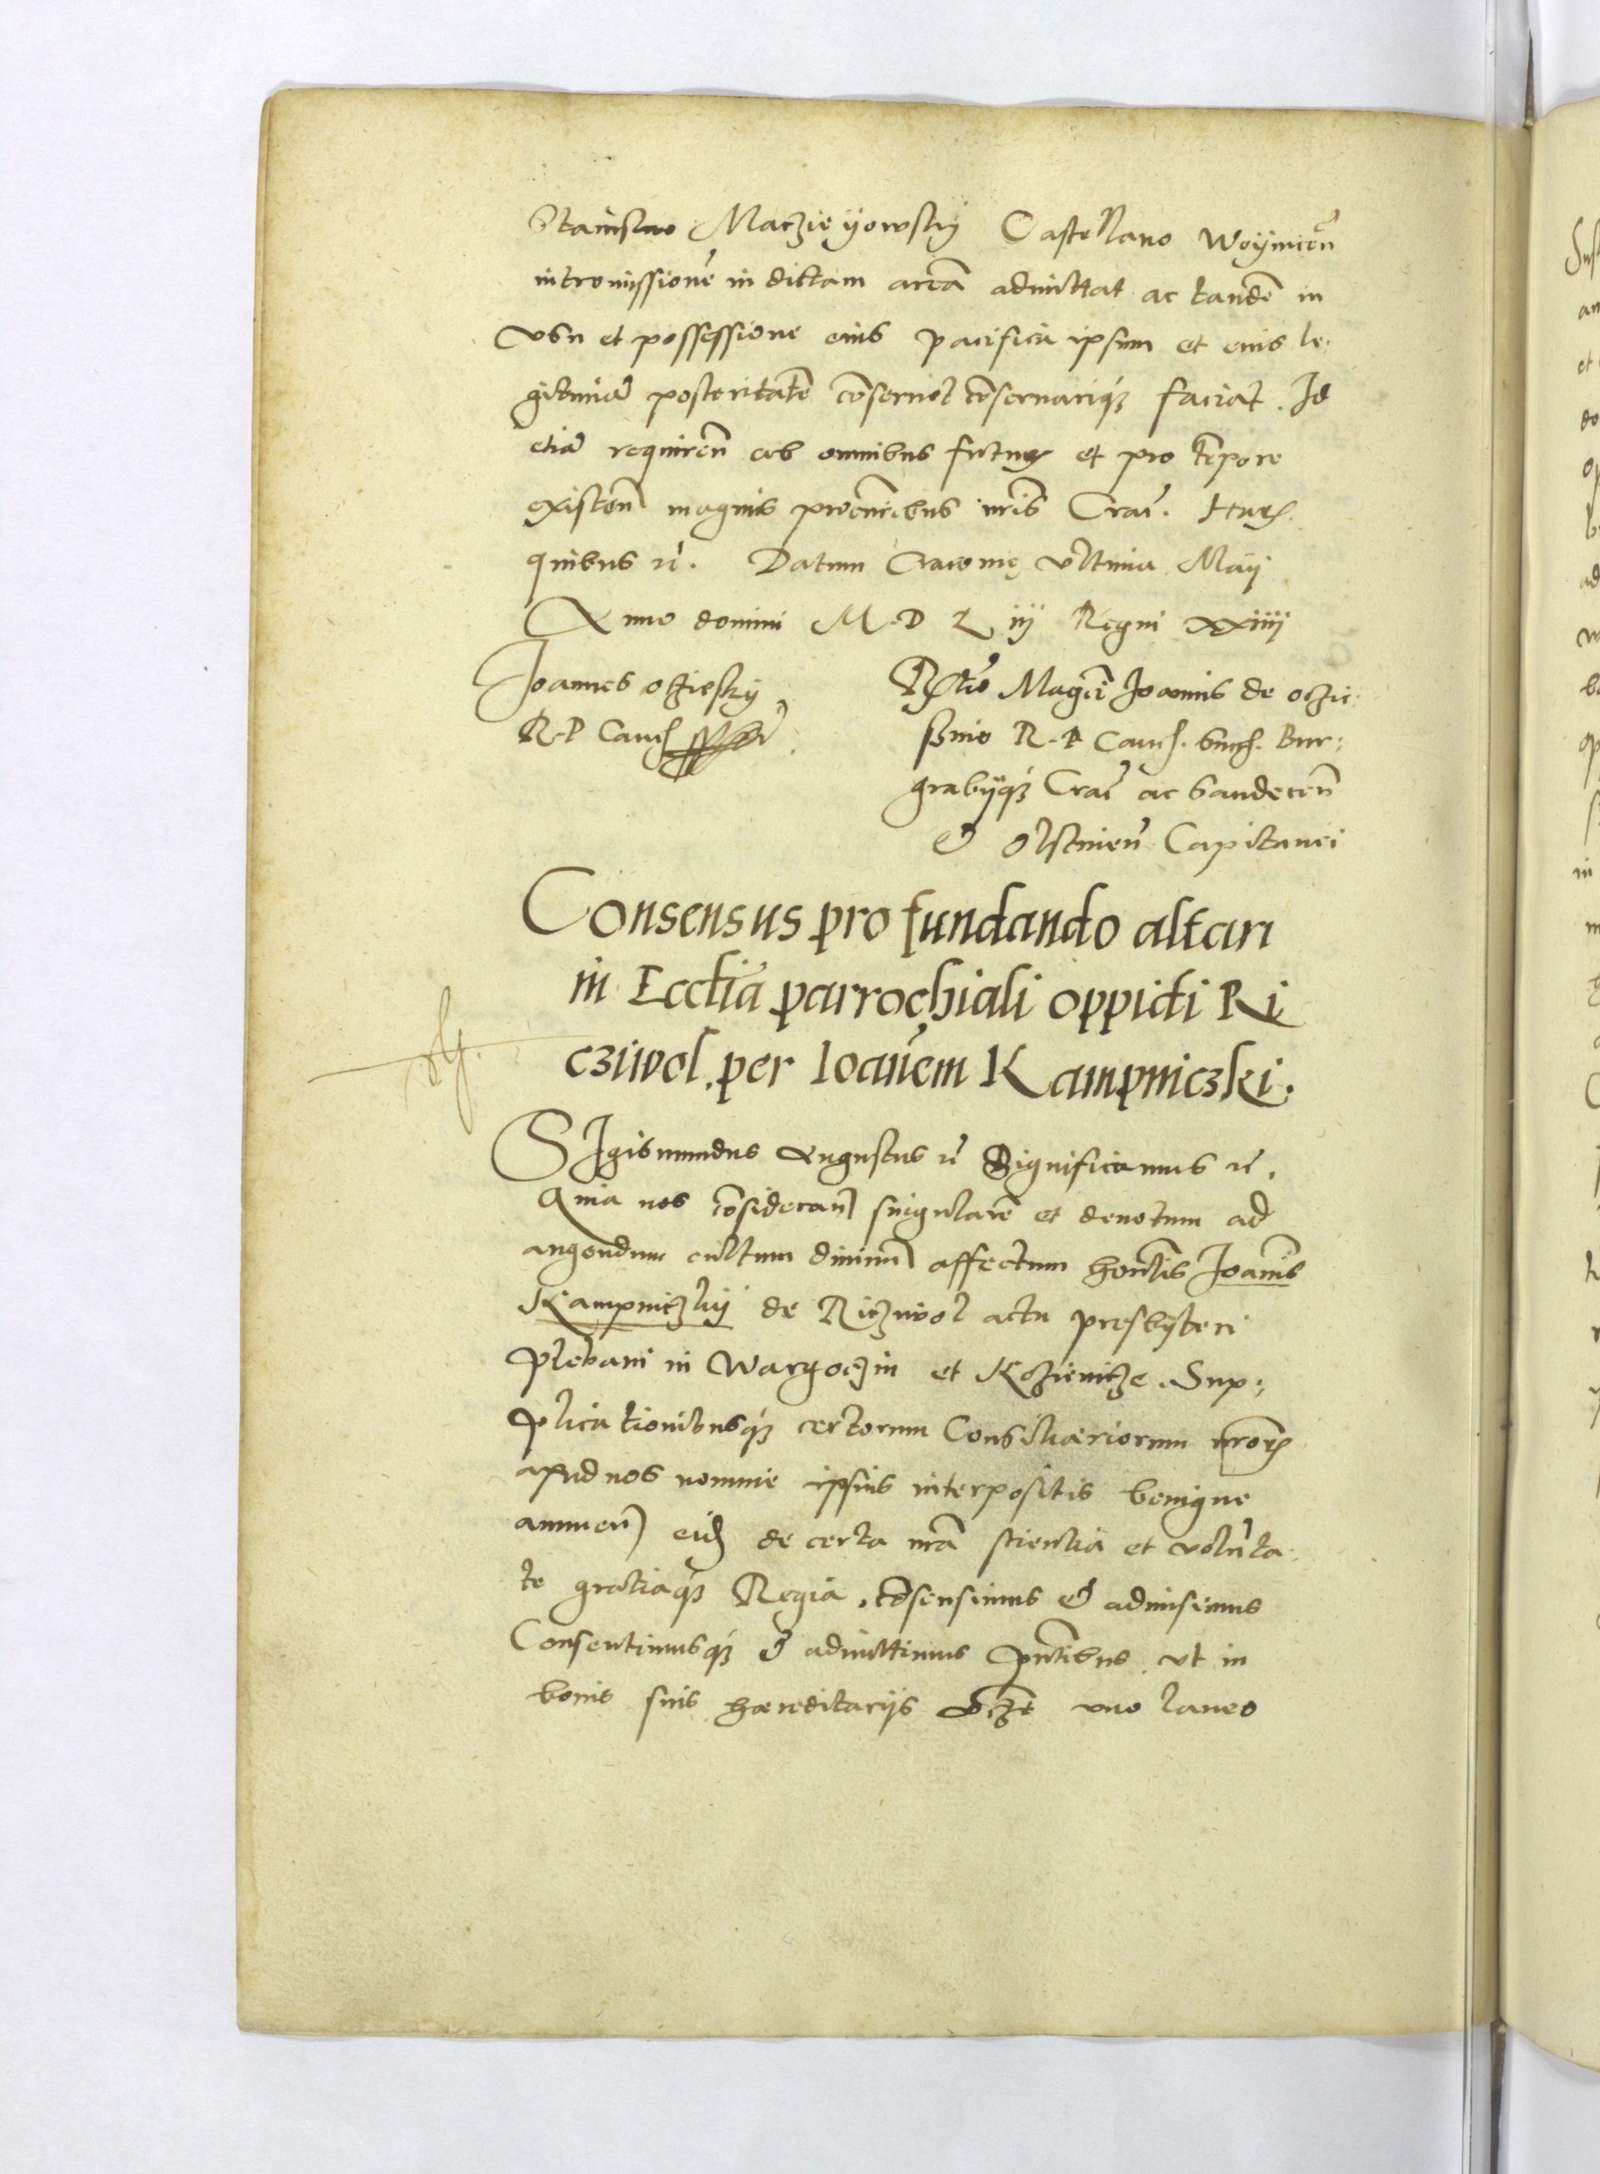 Stanislao Maczieyowsky Castellano Woynicen̄
intromissionē in dictam areā admittat ac tandē in
vsu et possessione eius pacifica ipsum et eius le:
gitimā posteritatē cōseruet cōseruariq́ȝ faciat. Id
etiā requiren̄ ab omnibus futuris et pro tēpore
existen̄ magnis procuratoribus nr̄is Crac̄. Harȝ
quibus ꝛc̄. Datum Cracouię vltima Maij
Anno domini M.D L iij Regni xxiiii
Joannes ocziesky
R.P Canc̄
Rel̄tio Magc̄i Joannis de oczie:
schino R.P Canc̄. Suc̄. Bur:
grabijq́ȝ Crac̄ ac Sandecen̄
& Olstinen̄ Capitanei
Consensus pro fundando altari
in Eccl̄ia parrochiali oppidi Ri
cziwol. per Ioan̄em Kampniczki.
SIgismundus Augustus ꝛc̄ Significamus ꝛc̄.
Quia nos cōsideran̄ singularē et deuotum ad
augendum cultum diuinū affectum hon̄lis Joan̄is
Kampniczky de Riczuwol actu presbyteri
plebani in Wargoczin et Kozienicze. Sup:
plicationibusq́ȝ certorum Consiliariorum nr̄orȝ
apud nos nomine ipsius interpositis benigne
annuen̄ eid̄ de certa nr̄a scientia et volun̄ta
te gratiaq́ȝ Regia. cōsensimus & admisimus
Consentimusq́ȝ & admittimus pn̄tibus vt in
bonis suis hæreditarijs uno laneo